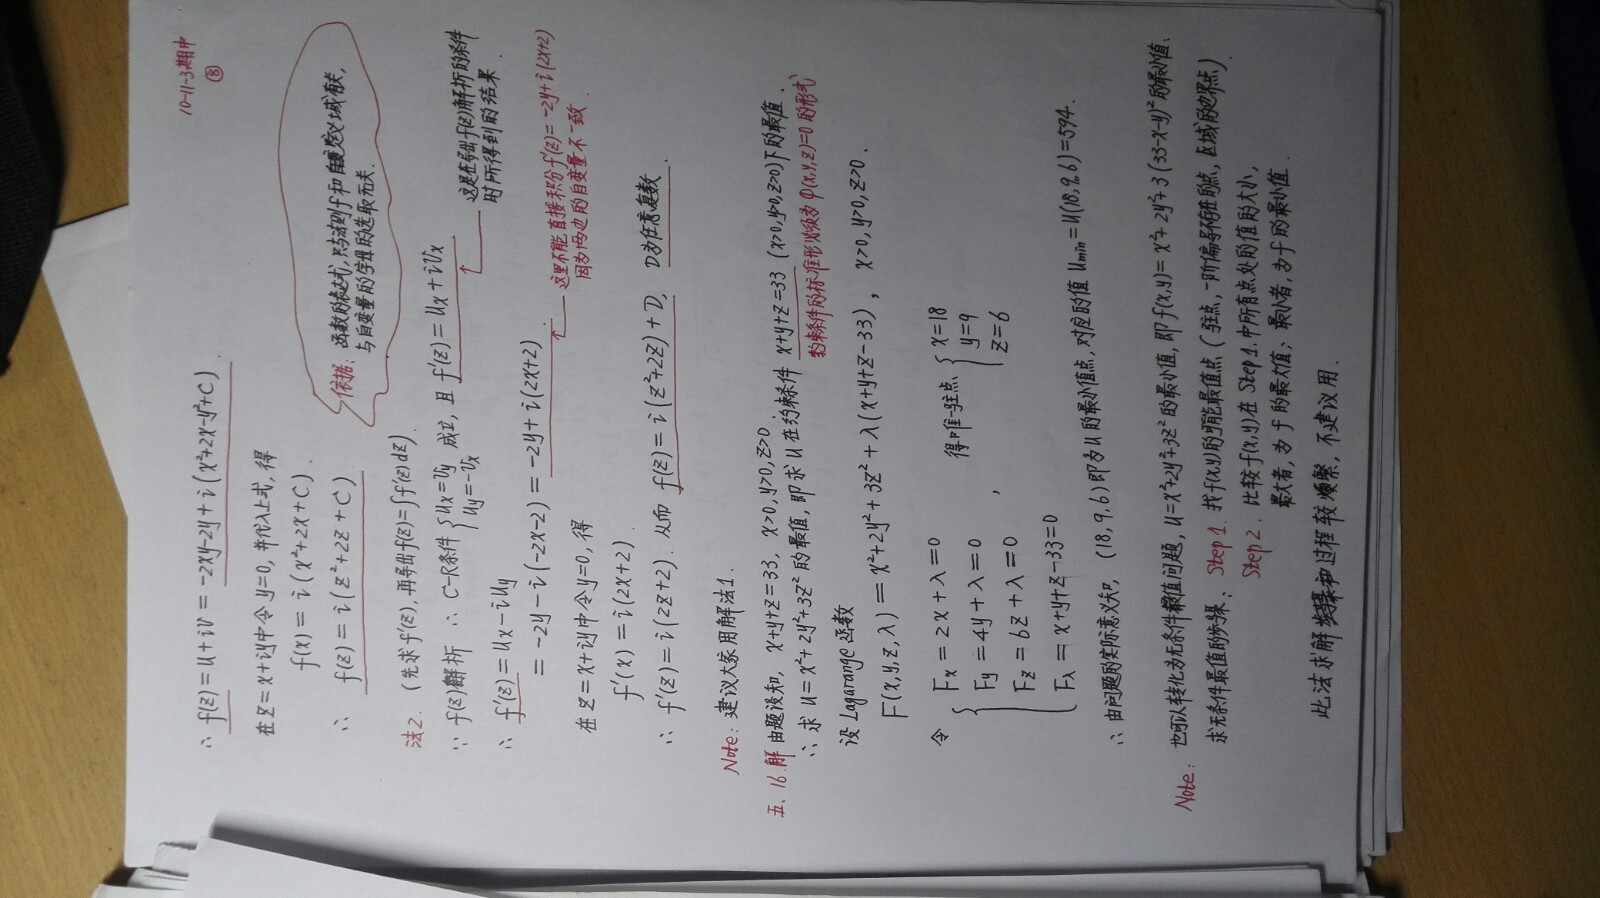 10-11-3期中
⑧
∴ f(z) = u + iv = -2xy - 2y + i(x²+2x-y²+C).
在 z = x+iy中令 y=0, 并代入上式, 得
f(x) = i(x²+2x+C).
∴ f(z) = i(z²+2z+C).
依据: 函数的表达式, 只与法则f和定义域有关,
与自变量的字母的选取无关.
法2. (先求 f'(z), 再导出 f(z)=∫f'(z)dz).
∵ f(z)解析 ∴ C-R条件 { ux=vy uy=-vx 成立, 且 f'(z) = ux + ivx
这是在导出f(z)解析的条件
时所得到的结果.
∴ f'(z) = ux - iuy
= -2y - i(-2x-2) = -2y + i(2x+2)
这里不能直接积分 f'(z) = -2y + i(2x+2)
因为两边的自变量不一致
在 z = x+iy中令 y=0, 得
f'(x) = i(2x+2)
∴ f'(z) = i(2z+2). 从而 f(z) = i(z²+2z) + D, D为任意复数
Note: 建议大家用解法1.
五、16.解 由题设知, x+y+z=33, x>0, y>0, z>0
∴ 求 u = x²+2y²+3z² 的最值, 即求 u 在约束条件 x+y+z=33 (x>0, y>0, z>0)下的最值.
约束条件的标准形必须为 φ(x,y,z)=0 的形式
设 Lagarange 函数
F(x,y,z,λ) = x²+2y²+3z²+λ(x+y+z-33), x>0, y>0, z>0.
令 { Fx = 2x+λ=0
Fy = 4y+λ=0
Fz = 6z+λ=0 , 得唯一驻点 { x=18 y=9 z=6
Fλ = x+y+z-33=0
∴ 由问题的实际意义知, (18,9,6)即为u的最小值点, 对应的值 umin = u(18,9,6)=594.
Note: 也可以转化为无条件最值问题, u=x²+2y²+3z²的最小值, 即 f(x,y)= x²+2y²+3(33-x-y)²的最小值.
求无条件最值的步骤: Step 1. 找f(x,y)的可能最值点 (驻点, 一阶偏导不存在的点, 区域的边界点)
Step 2. 比较 f(x,y)在 Step 1. 中所有点处的值的大小,
最大者, 为 f 的最大值; 最小者, 为 f 的最小值.
此法求解过程较频繁, 不建议用.